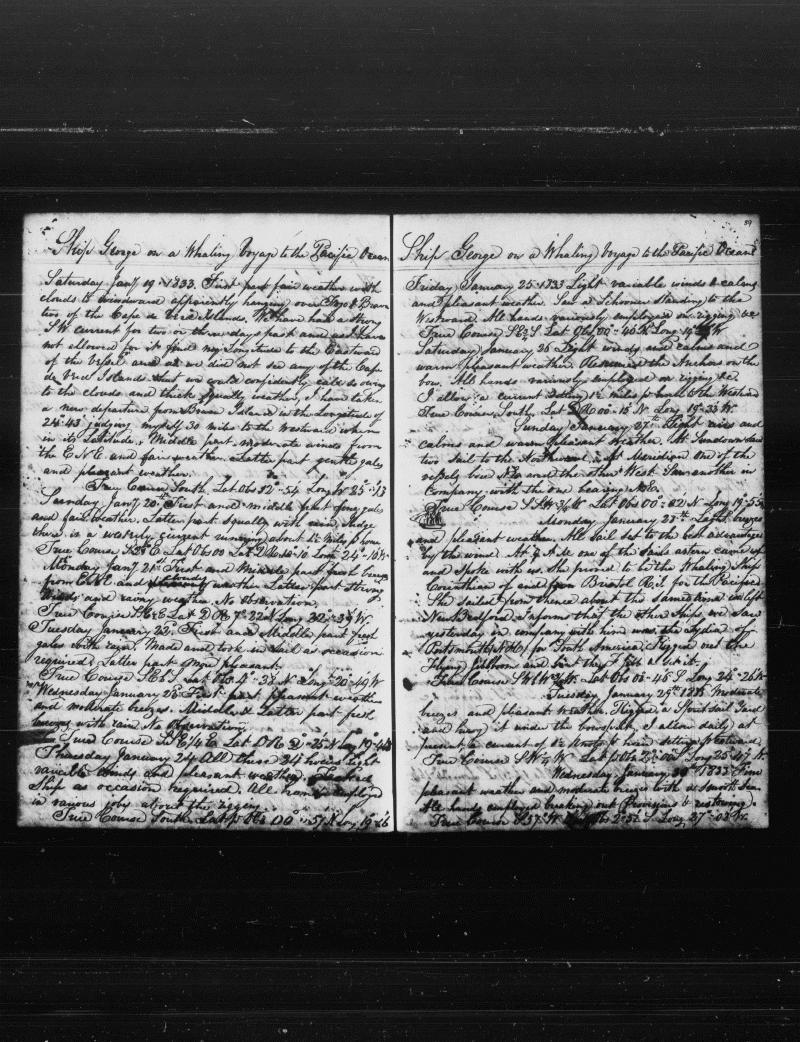 Ship George on a Whaling Voyage to the Pacific Ocean
Saturday Jany 19 1833. First part fair weather with
clouds to windward apparently hanging over Fogo & Brava
two of the Cape de Verd Islands. We have had a strong
SW current for two or three days past and as I have
not allowed for it find my Longitude to the Eastward
of the Vessel and as we did not see any of the Cape
de Verd Islands that we could confidently call so owing
to the clouds and thick squally weather, I have taken
a new departure from Brava Island in the Longitude of
24.43 judging myself 30 miles to the Westward when
in its Latitude, Middle part moderate winds from
the E.N.E and fair weather. Latter part gentle gales
and pleasant weather.
True Course South. Lat Obs 12°-54 Long W 25°
Sunday Jany 20th First and middle part fine gales
and fair weather. Latter part Squally with rain, Judge
there is a westerly current running about 1½ miles p hour
True Course Lat Obs 00 Lat D R 10°-10 Long 24°
Monday Jany 21st First and Middle part fresh breezes
from ENE and cloudy weather Latter part Strong
Winds and rainy weather. No Observation.
True Course Lat D R 7° 22 N Long
Tuesday January 22, First and Middle part fresh
gales with rain. Made and took in Sail as occasion
required Latter part More pleasant.
True Course Lat Obs 4° N Long 20°-49 W
Wednesday January 23 First part pleasant weather
and moderate breezes. Middle & Latter part fresh
breezes with rain No Observation
True Course Lat D R 2°-25 N Long 19°
Thursday January 24 All these 24 hours light
variable winds and pleasant weather.
Ship as occasion required. All hands employed
in various jobs about the rigging
True Course South Lat p Obs 00°-57 N Long 19-26
59
Ship George on a Whaling Voyage to the Pacific Ocean
Friday January 25 1833 Light variable winds & calms
and pleasant weather. Saw a Schooner Standing to the
Westward. All hands variously employed on rigging &c
True Course Lat Obs 00°-46 N Long 19° W
Saturday January 26 Light winds and calms and
warm pleasant weather. the Anchors on the
bow. All hands variously employed on rigging &c.
I allow a current setting 1½ miles p hour to the Westward
True Course, South, Lat D R 00°-15 N Long 19-33 W.
Sunday January 27th Light airs and
calms and warm pleasant weather. At Sundown Saw
two Sail to the Northward, at Meridian one of the
vessels bore and the other West Saw another in
Company with the one bearing
True Course Lat Obs 00° N Long 19-55
Monday January 28th Light breezes
and pleasant weather. All Sail set to the best advantage
by the wind. At one of the Sails astern came up
and spoke with us. She proved to be the Whaling Ship
Corinthian of and from Bristol R.I. for the Pacific
She Sailed from thence about the Same time we left
New Bedford & informs that the other Ships we saw
yesterday in company with him was the Lydia of
Portsmouth N.H. for South America. Rigged out the
Flying Jibboom and bent the F Jib & set it.
True Course Lat Obs 00-46 S Long W
Tuesday January 29th 1833 Moderate
breezes and pleasant weather. Rigged a Spritsail Yard
and hung it under the bowsprit, I allow daily at
present a current of knots p hour setting Westward
True Course Lat p Obs S Long 25-47 W.
Wednesday January 30 1833 Fine
pleasant weather and moderate breezes with a smooth Sea.
All hands employed breaking out Provisions & restowing.
True Course Obs 2°-57 S Long 27°-03 W.